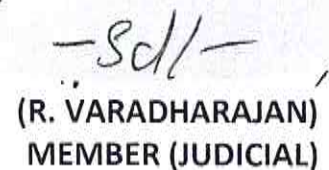 -Sd/-
(R. VARADHARAJAN)
MEMBER (JUDICIAL)